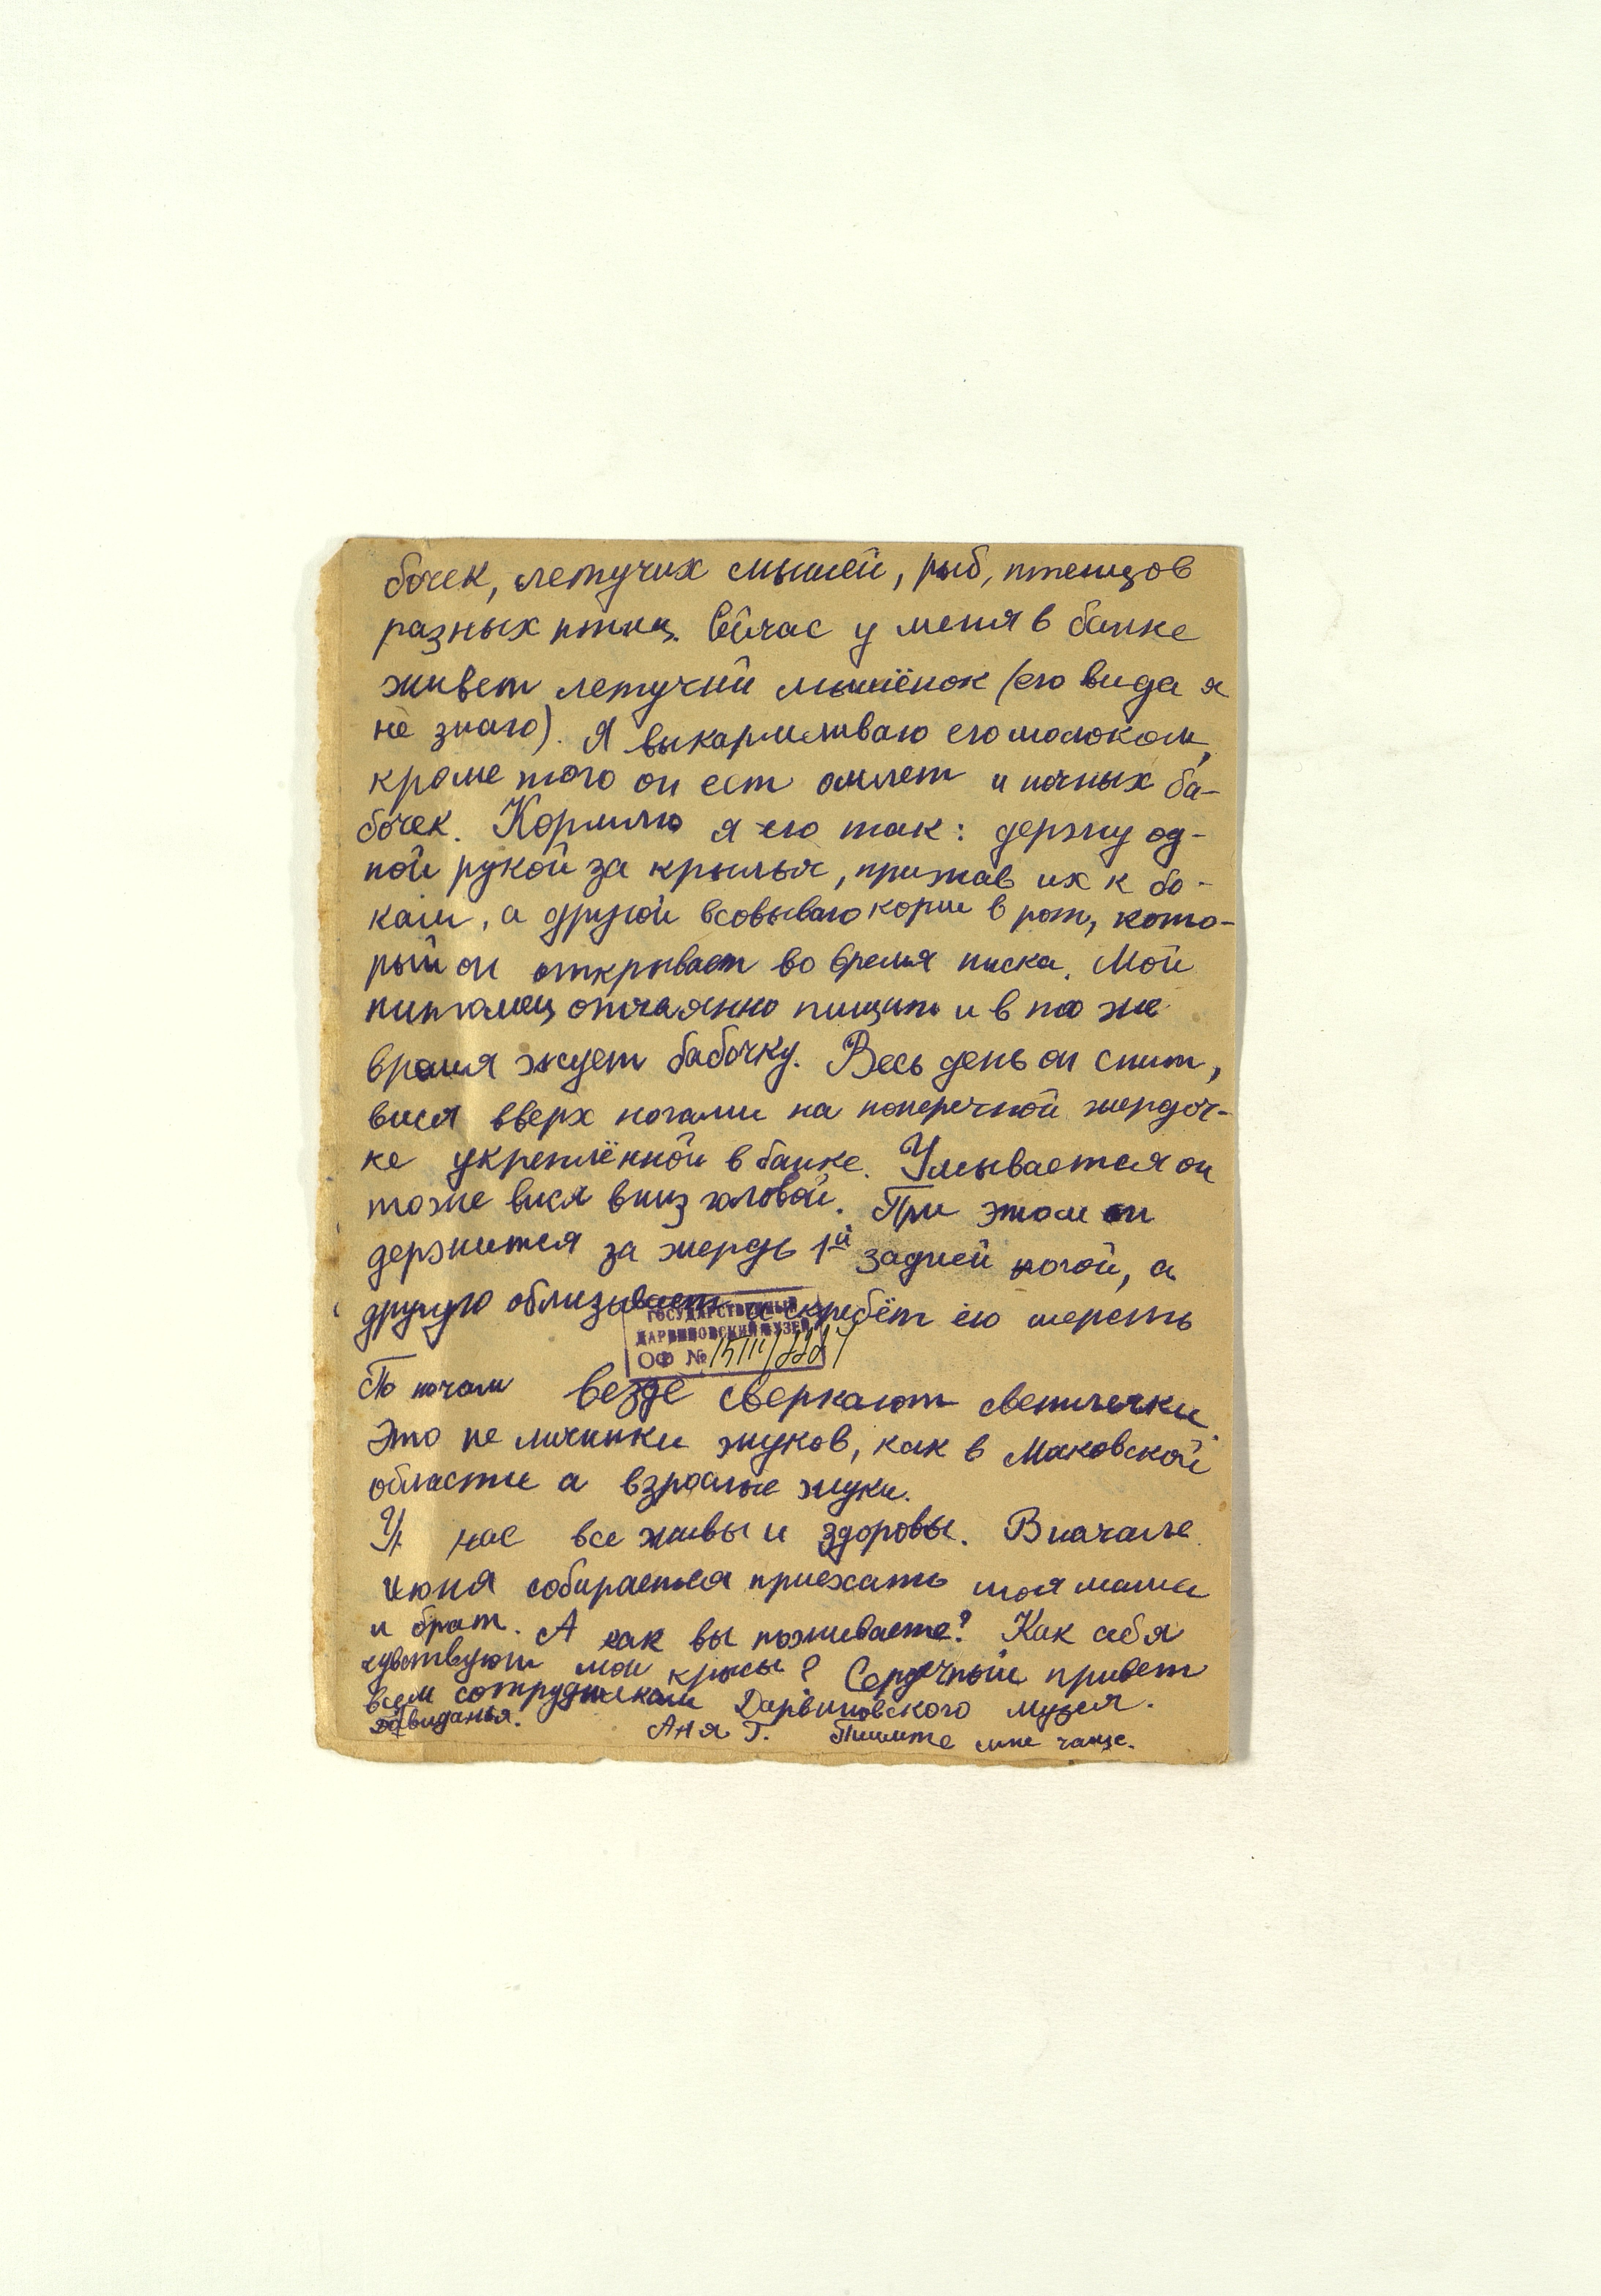 бочек, летучих мышей, рыб, птенцов
разных птиц. Сейчас у меня в банке
живет летучий мышёнок (его вида я
не знаю). Я выкармливаю его молоком,
кроме того он ест омлет и ночных ба-
бочек. Кормлю я его так: держу од-
ной рукой за крылья, прижав их к бо-
кам, а другой всовываю корм в рот, кото-
рый он открывает во время писка. Мой
питомец отчаянно пищит и в то же
время жует бабочку. Весь день он спит,
вися вверх ногами на поперечной жердоч-
ке укреплённой в банке. Умывается он
тоже вися вниз головой. При этом он
держится за жердь 1й задней ногой, а
другую облизывает и скребёт ею шерсть
ГОСУДАРСТВЕННЫЙ
ДАРВИНОВСКИЙ МУЗЕЙ
ОФ №
По ночам везде сверкают светлячки.
Это не личинки жуков, как в Московской
области а взрослые жуки.
У нас все живы и здоровы. Вначале
июня собирается приехать моя мама
и брат. А как вы поживаете? Как себя
чувствуют мои крысы? Сердечный привет
всем сотрудникам Дарвиновского музея.
Досвиданья. Аня Г. Пишите мне чаще.